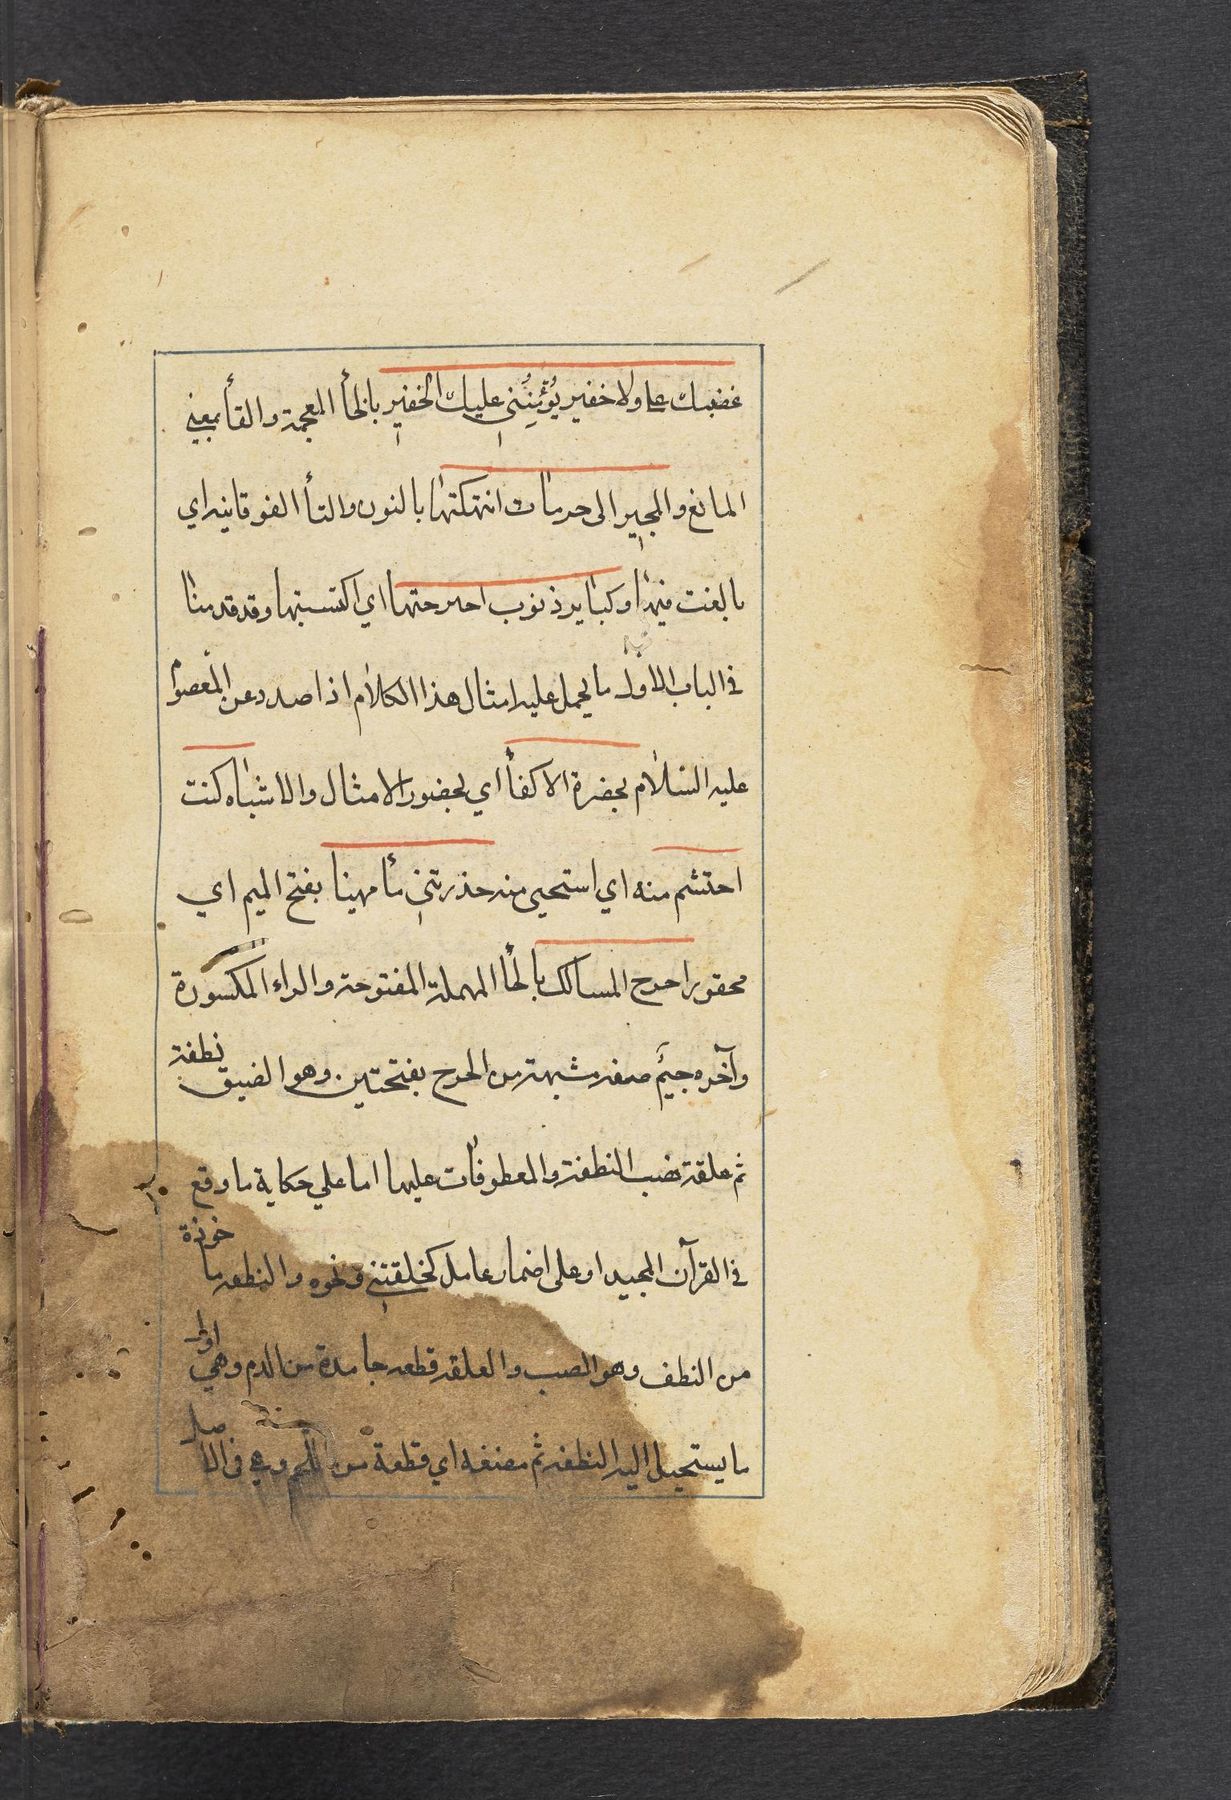 غضبك علي ولا خفير يؤمنني عليك الخفير بالخأ المعجمة والفأ بمعني
المانع والمجير الى حرمات انتهكتها بالنون والتأ الفوقانيه اي
بالغت فيها وكبائر ذنوب اجترحتها اي اكتسبتها وقد قدمنا
في الباب الاول ما يحمل عليه امثال هذا الكلام اذا صدر عن المعصوم
عليه السلام بحضرة الاكفأ اي بحضور الامثال والاشباه كنت
احتشم منه اي استحيى منه حذرتني مأ مهينا بفتح الميم اي
محقورا حرج المسالك بالحأ المهملة المفتوحة والراء المكسورة
وآخره جيم صفه مشبهة من الحرج بفتحتين وهو الضيق نطفة
ثم علقة نصب النطفة والمعطوفات عليها اما علي حكاية ما وقع
في القرآن المجيد او على اضمار عامل كخلقتني ونحوه والنطفه ماخوذة
من النطف وهو الصب والعلقه قطعه جامدة من الدم وهي اول
ما يستحيل اليه النطفه ثم مضغه اي قطعة من اللحم وهي في الاصل